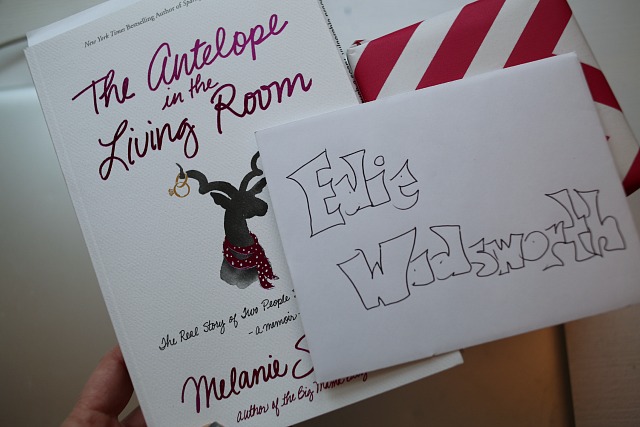 New York Times Bestselling Author of
The Antelope
in the
Living Room
The Real Story of Two People
- a memoir -
Melanie
author of the Big Mama
Edie
Wadsworth